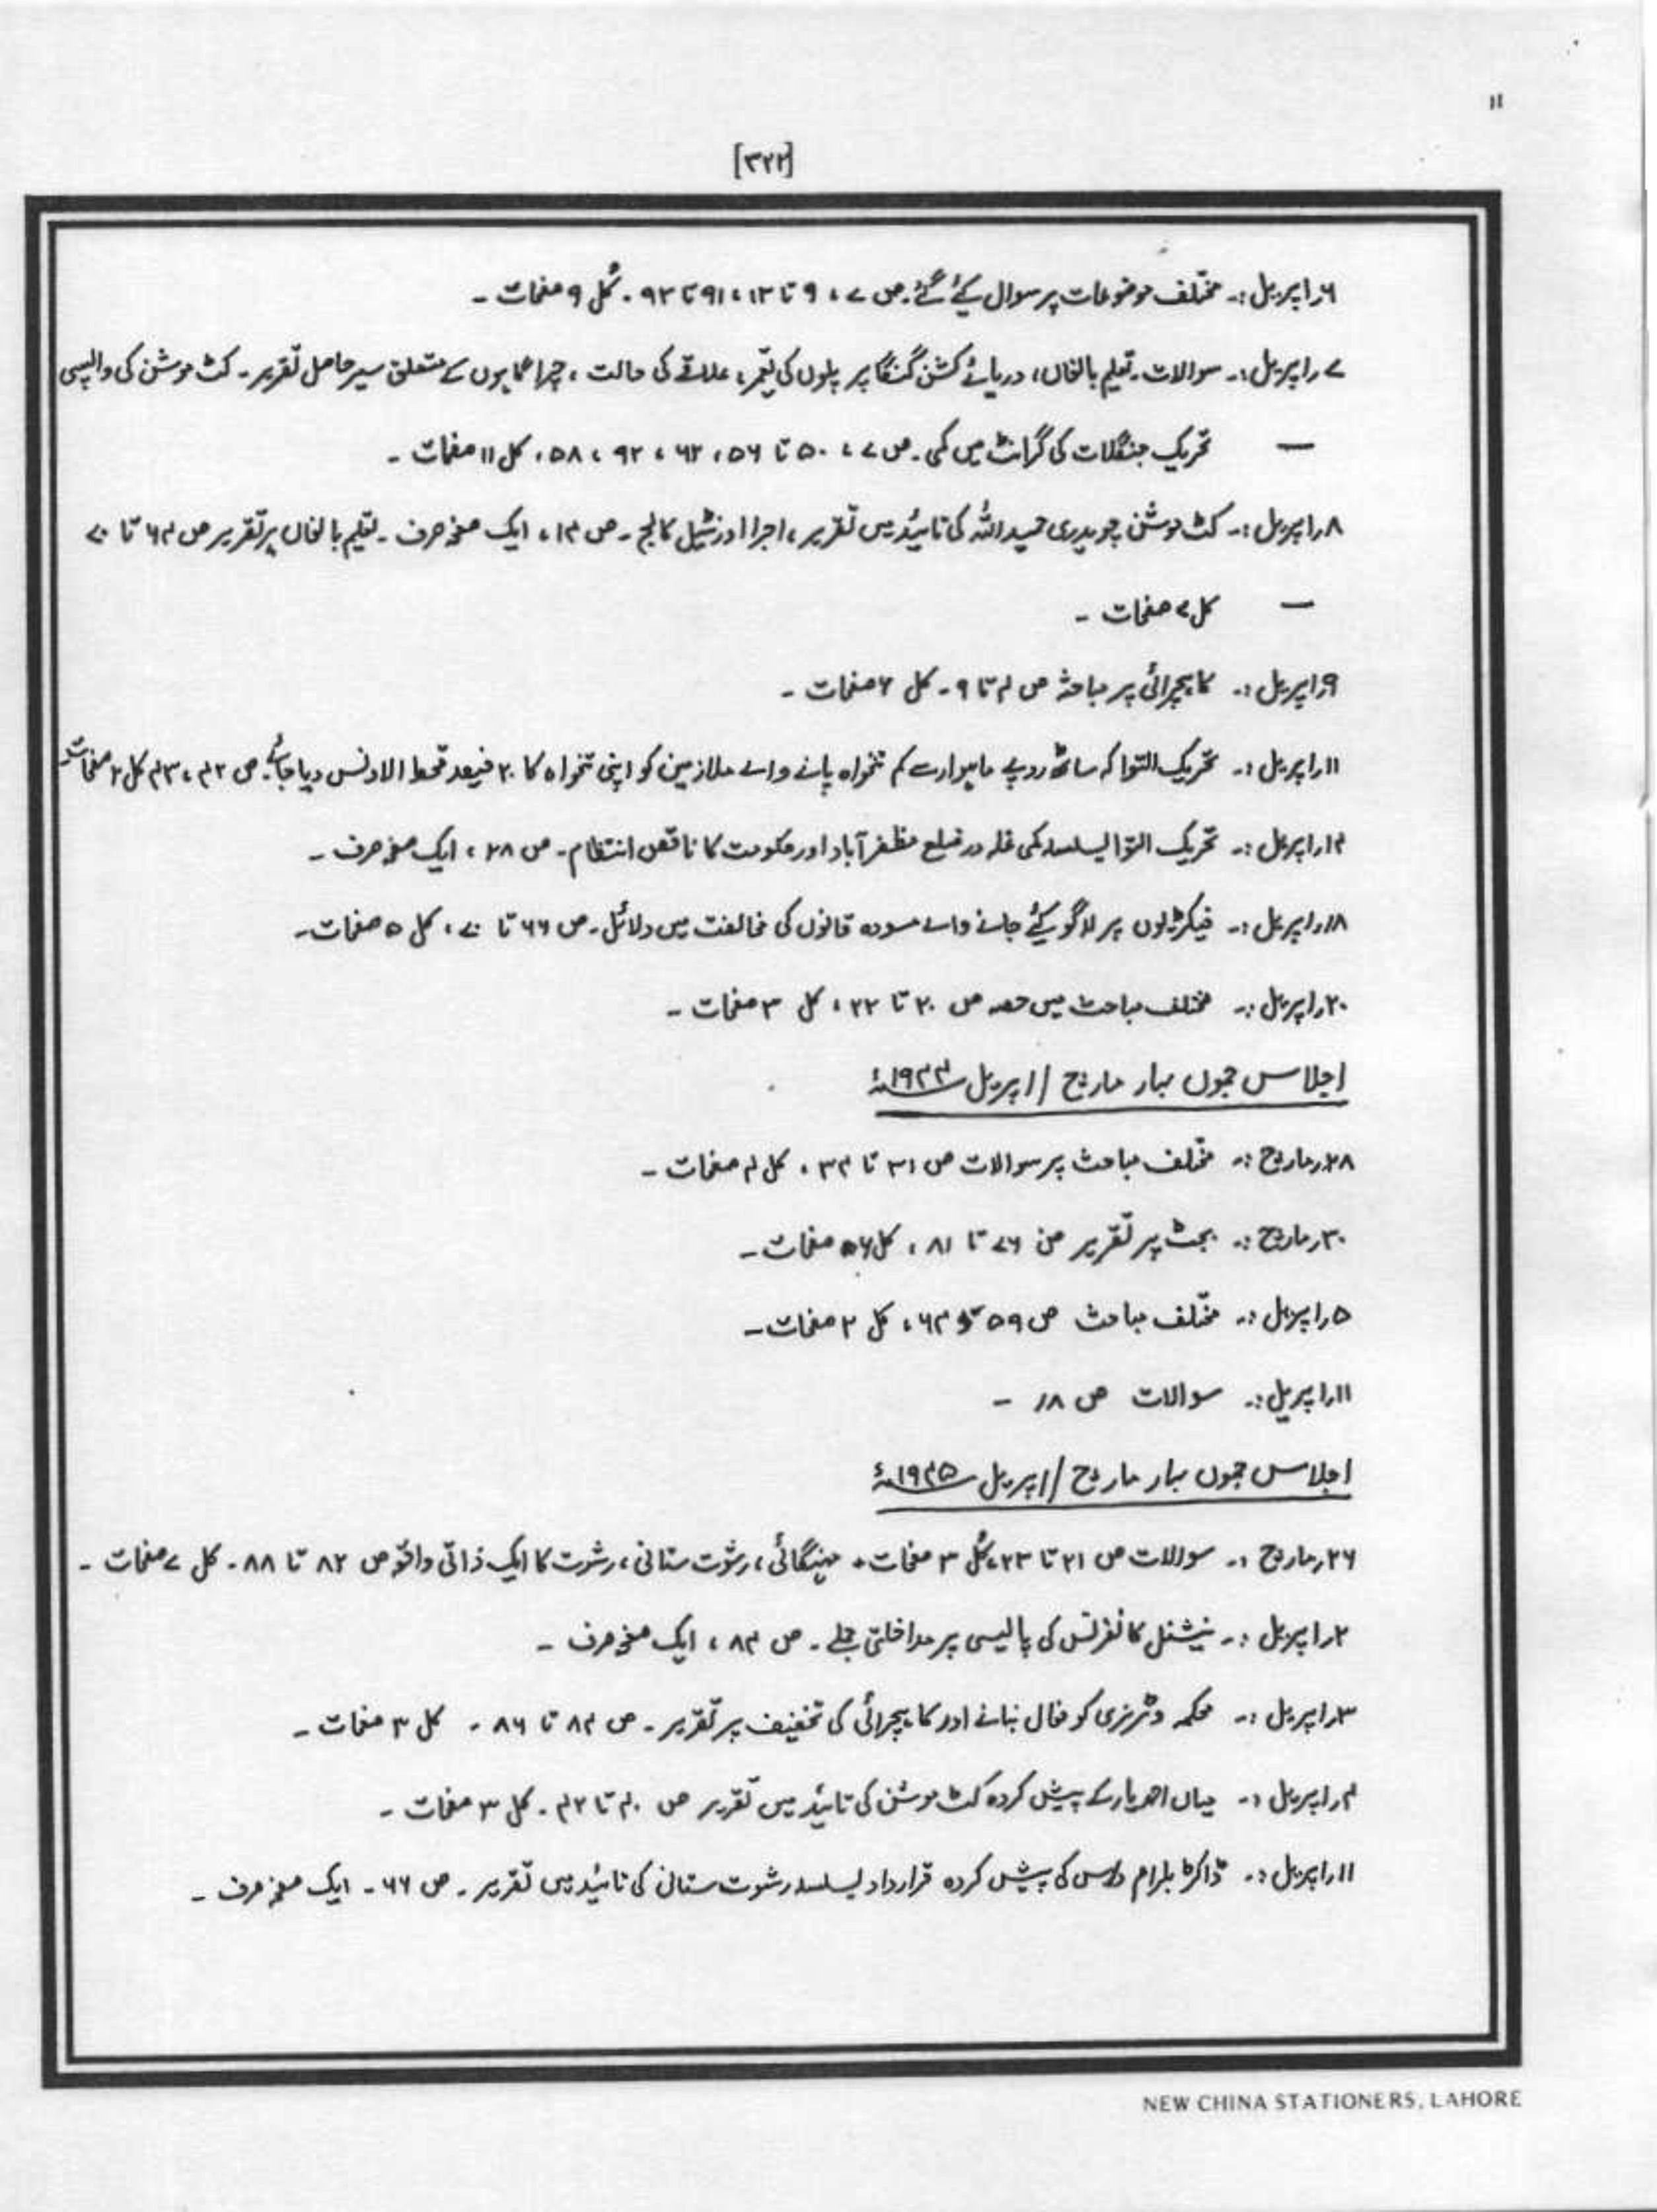 ۱۱
[۳۲۲]
۶؍اپریل:۔ مختلف موضوعات پر سوال کیٔے گئے۔ ص ۷، ۹ تا ۱۳، ۹۱ تا ۹۳۔ کُل ۹ صفحات۔
۷؍اپریل:۔ سوالات۔ تعلیم بالغاں، دریائے کشن گنگا پر پلوں کی تعمیر، علاقے کی حالت، چراگاہوں سے متعلق سیر حاصل تقریر۔ کٹ موشن کی واپسی
— تحریک جنگلات کی گرانٹ میں کمی۔ ص ۷، ۵۰ تا ۵۶، ۶۲، ۹۲، ۵۸، کل ۱۱ صفحات۔
۸؍اپریل:۔ کٹ موشن چوہدری حمیداللہ کی تائید میں تقریر، اجرا اورنٹیل کالج۔ ص ۱۴، ایک صفحہ صرف۔ تعلیم بالغاں پر تقریر ص ۶۴ تا ۷۰
— کل ۷ صفحات۔
۹؍اپریل:۔ کاہچرائی پر مباحثہ ص ۴ تا ۹۔ کل ۶ صفحات۔
۱۱؍اپریل:۔ تحریک التوا کہ ساٹھ روپے ماہوار سے کم تنخواہ پانے والے ملازمین کو اپنی تنخواہ کا ۲۰ فیصد قحط الاونس دیا جائے۔ ص ۴۲، ۴۳ کل ۲ صفحات۔
۱۴؍اپریل:۔ تحریک التوا بسلسلہ کمی غلہ در ضلع مظفرآباد اور حکومت کا ناقص انتظام۔ ص ۲۸، ایک صفحہ صرف۔
۱۸؍اپریل:۔ فیکٹریوں پر لاگو کیٔے جانے والے مسودہ قانوں کی مخالفت میں دلائل۔ ص ۶۶ تا ۷۰، کل ۵ صفحات۔
۲۰؍اپریل:۔ مختلف مباحث میں حصہ ص ۲۰ تا ۲۲، کل ۳ صفحات۔
اجلاس جموں بہار مارچ / اپریل ۱۹۴۴ء
۲۸؍مارچ:۔ مختلف مباحث پر سوالات ص ۳۱ تا ۳۴، کل ۴ صفحات۔
۳۰؍مارچ:۔ بجٹ پر تقریر ص ۷۶ تا ۸۱، کل ۶ صفحات۔
۵؍اپریل:۔ مختلف مباحث ص ۵۹ ۶۴، کل ۲ صفحات۔
۱۱؍اپریل:۔ سوالات ص ۱۸۔
اجلاس جموں بہار مارچ / اپریل ۱۹۴۵ء
۲۶؍مارچ:۔ سوالات ص ۲۱ تا ۲۳، کُل ۳ صفحات۔ مہنگائی، رشوت ستانی، رشوت کا ایک ذاتی واقعہ ص ۸۲ تا ۸۸۔ کل ۷ صفحات۔
۲؍اپریل:۔ نیشنل کانفرنس کی پالیسی پر مداخلتی جملے۔ ص ۸۴، ایک صفحہ صرف۔
۳؍اپریل:۔ محکمہ وٹرنری کو فعال بنانے اور کاہچرائی کی تخفیف پر تقریر۔ ص ۸۴ تا ۸۶۔ کل ۳ صفحات۔
۴؍اپریل:۔ میاں احمد یار کے پیش کردہ کٹ موشن کی تائید میں تقریر ص ۴۰ تا ۴۲۔ کل ۳ صفحات۔
۱۱؍اپریل:۔ ڈاکٹر بلرام داس کی پیش کردہ قرارداد بسلسلہ رشوت ستانی کی تائید میں تقریر۔ ص ۶۶۔ ایک صفحہ صرف۔
NEW CHINA STATIONERS, LAHORE